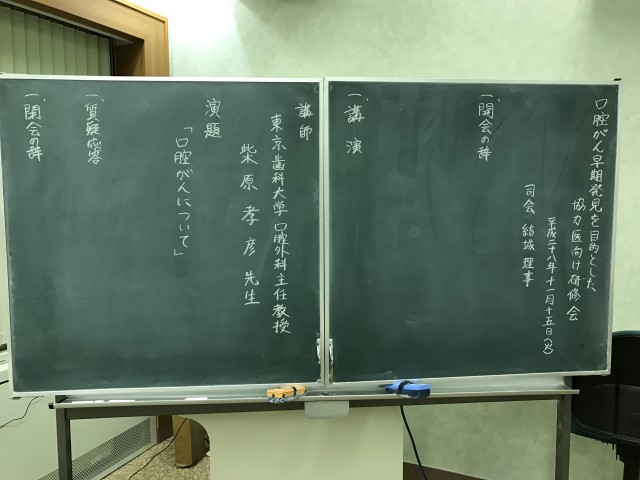 口腔がん早期発見を目的とした
協力医向け研修会
平成二十八年十一月十五日(火)
司会 結城理事
一、開会の辞
一、講演
講師
東京歯科大学口腔外科主任教授
柴原孝彦先生
演題
「口腔がんについて」
一、質疑応答
一、閉会の辞